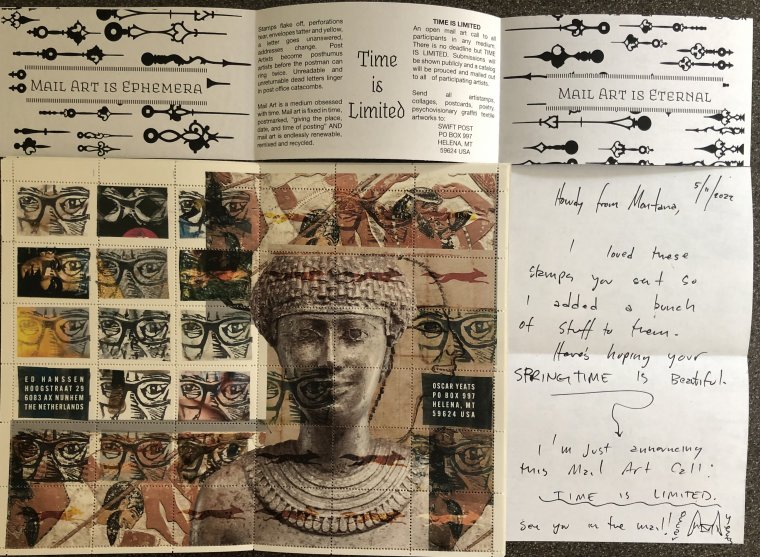 MAIL ART IS EPHEMERA
Stamps flake off, perforations
tear, envelopes tatter and yellow,
a letter goes unanswered,
addresses change. Post
Artists become posthumus
artists before the postman can
ring twice. Unreadable and
unreturnable dead letters linger
in post office catacombs.
Mail Art is a medium obsessed
with time. Mail art is fixed in time,
postmarked, "giving the place,
date, and time of posting" AND
mail art is endlessly renewable,
remixed and recycled.
Time
is
Limited
TIME IS LIMITED
An open mail art call to all
participants in any medium.
There is no deadline but TIME
IS LIMITED. Submissions will
be shown publicly and a catalog
will be prouced and mailed out
to all of participating artists.
Send all artistamps,
collages, postcards, poetry,
psychovisionary graffiti textile
artworks to:
SWIFT POST
PO BOX 997
HELENA, MT
59624 USA
MAIL ART IS ETERNAL
ED HANSSEN
HOOGSTRAAT 29
6003 AX NUNHEM
THE NETHERLANDS
OSCAR YEATS
PO BOX 997
HELENA, MT
59624 USA
5/11/2022
Howdy from Montana,
I loved these
stamps you sent so
I added a bunch
of stuff to them.
Here's hoping your
SPRINGTIME is Beautiful.
I'm just announcing
this Mail Art Call:
TIME IS LIMITED.
See you in the mail!